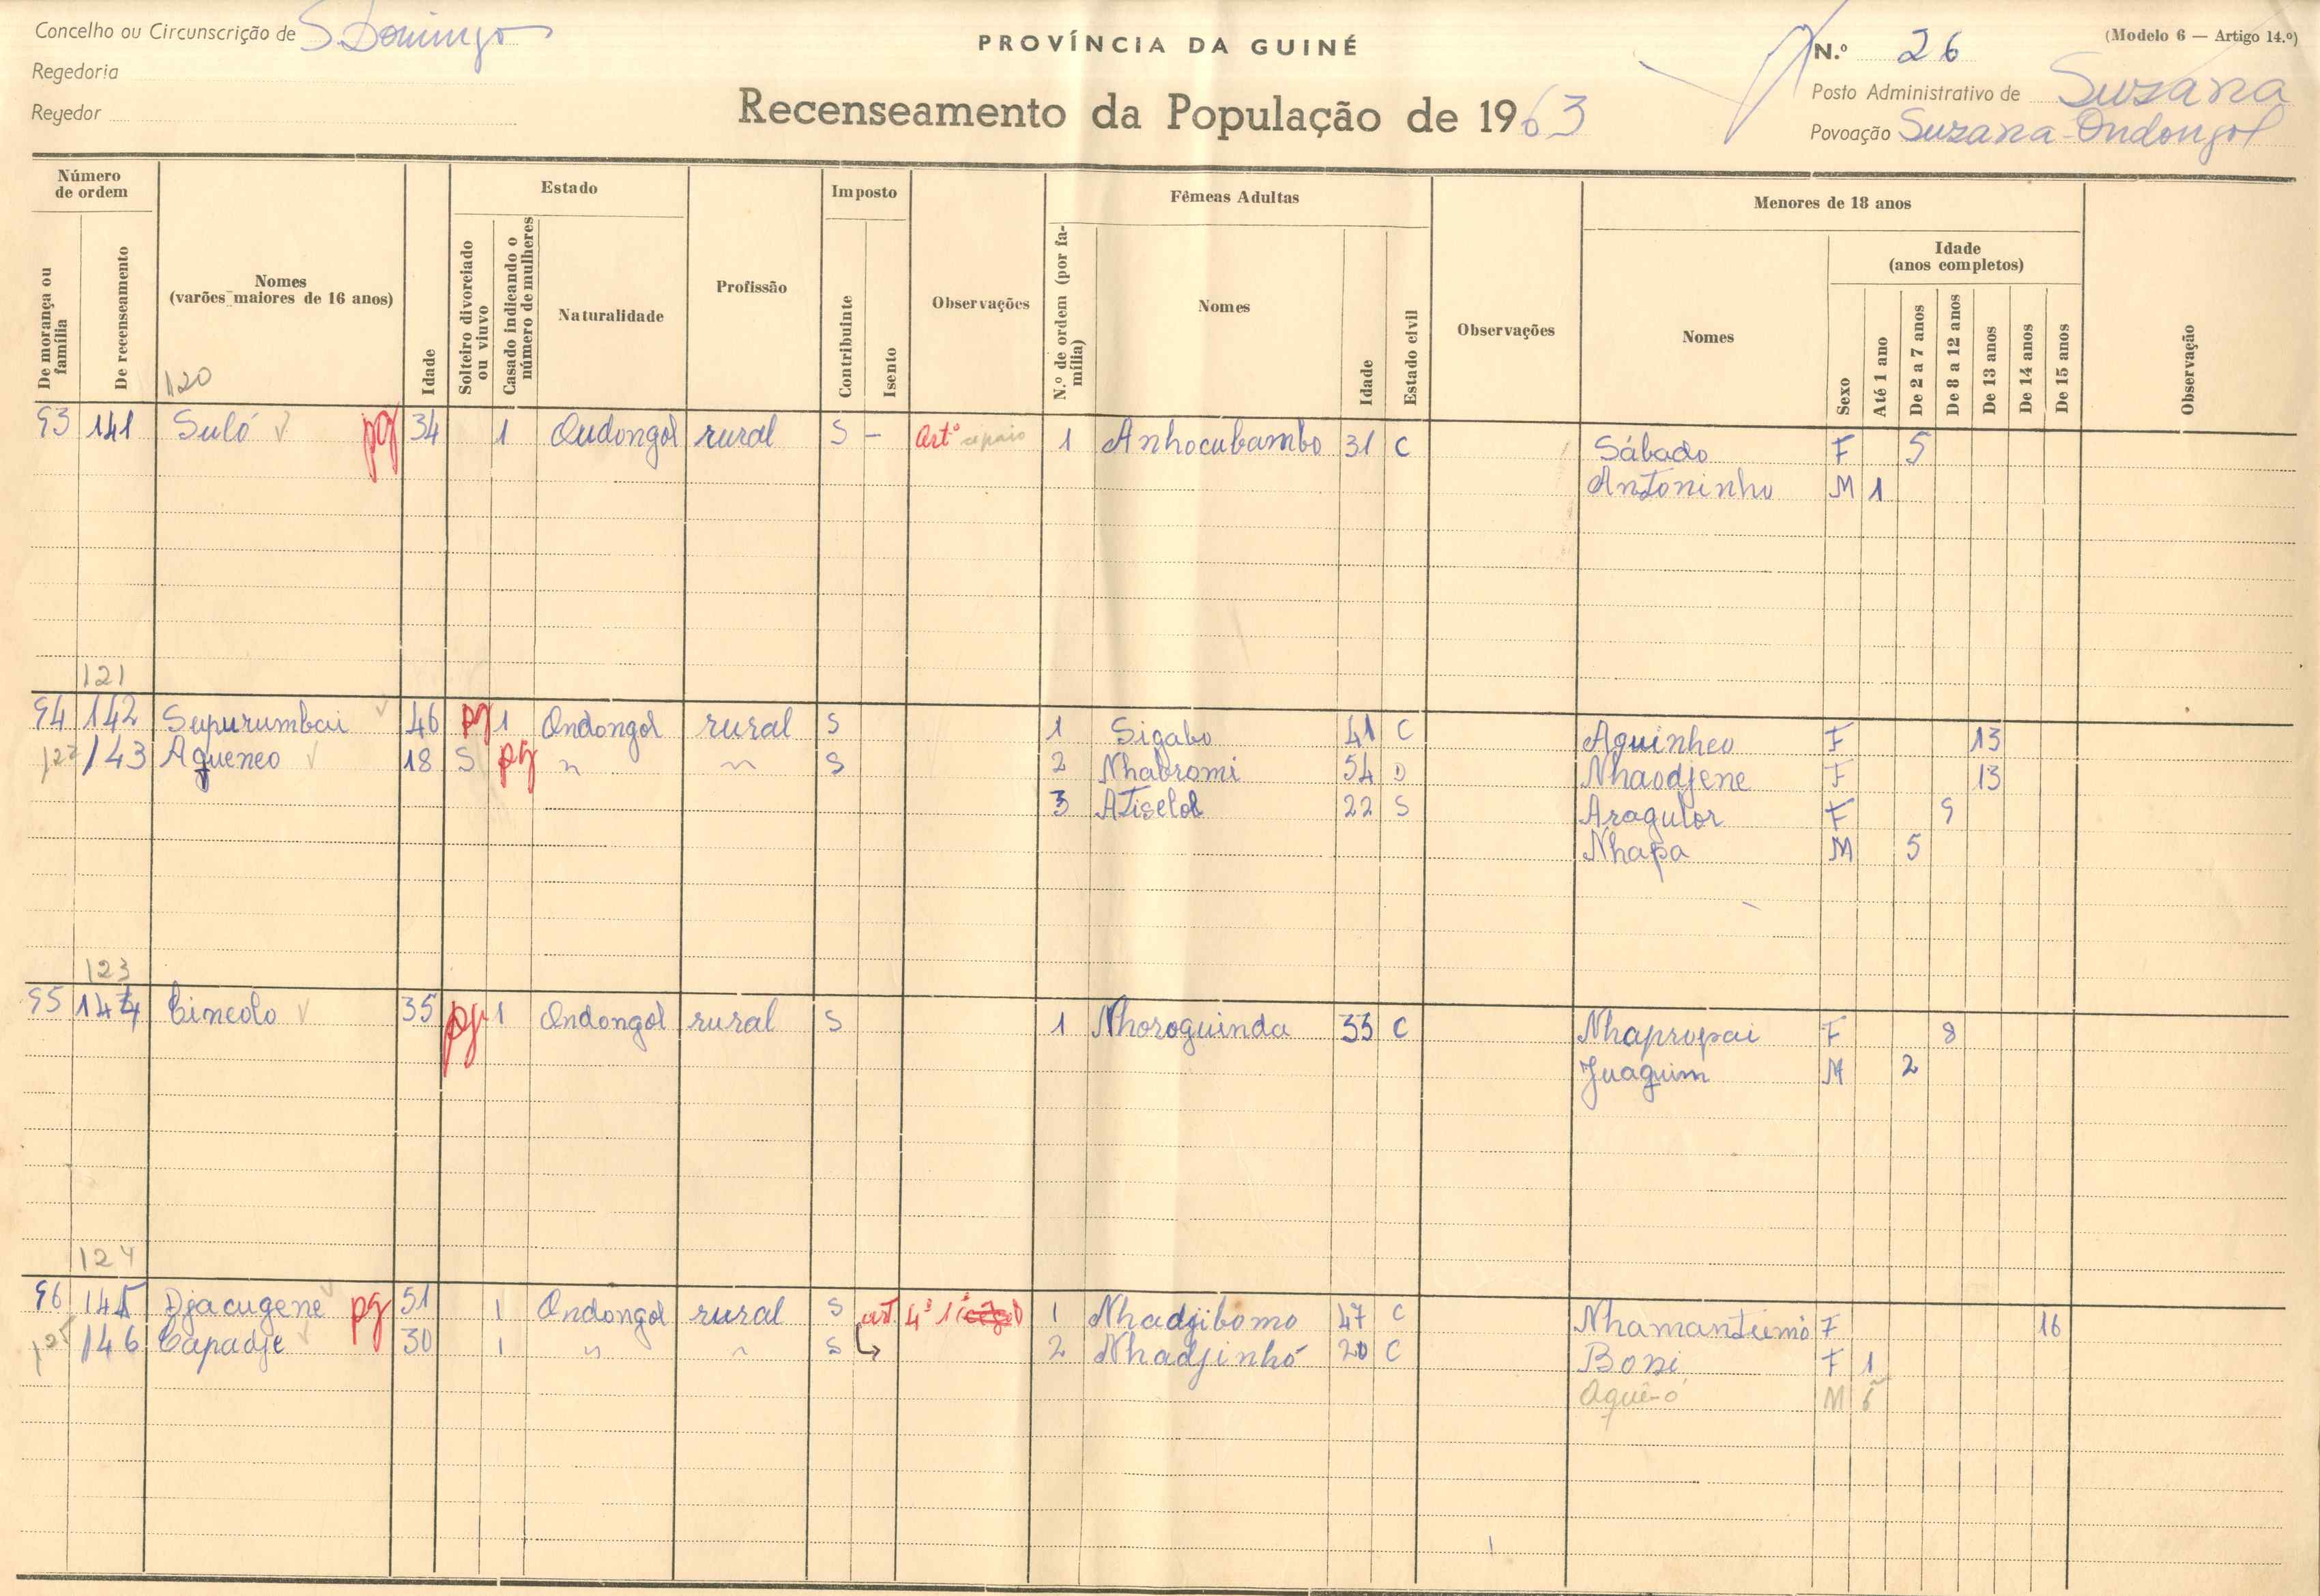 Concelho ou Circunscrição de S. Domingo
Regedoria
Regedor
PROVÍNCIA DA GUINÉ
Recenseamento da População de 1963
(Modelo 6 — Artigo 14.º)
N.º 26
Posto Administrativo de Suzana
Povoação Suzana-Ondongol
Número de ordem
De morança ou família
De recenseamento
Nomes (varões maiores de 16 anos)
Idade
Estado
Solteiro divorciado ou viuvo
Casado indicando o número de mulheres
Naturalidade
Profissão
Imposto
Contribuinte
Isento
Observações
Fêmeas Adultas
N.º de ordem (por família)
Nomes
Idade
Estado civil
Observações
Menores de 18 anos
Nomes
Sexo
Idade (anos completos)
Até 1 ano
De 2 a 7 anos
De 8 a 12 anos
De 13 anos
De 14 anos
De 15 anos
Observação
120
93 141 Suló pg 34 1 Ondongol rural S - Artº cipaio 1 Anhocubambo 31 C Sábado F 5
Antoninho M 1
121
94 142 Supurumbai 46 pg 1 Ondongol rural S 1 Sigabo 41 C Aguinheo F 13
122 143 Agueneo 18 S pg " " S 2 Nhabromi 54 D Nhaodjene F 13
3 Atiselol 22 S Aragulor F 9
Nhapa M 5
123
95 144 Cineolo 35 pg 1 Ondongol rural S 1 Nhoroguinda 33 C Nhapropai F 8
Juaguim M 2
124
96 145 Djacugene pg 51 1 Ondongol rural S art 4º 1 Nhadjibomo 47 C Nhamantumó F 16
125 146 Capadje 30 1 " " S 2 Nhadjinhó 20 C Boni F 1
Aguê-ó M